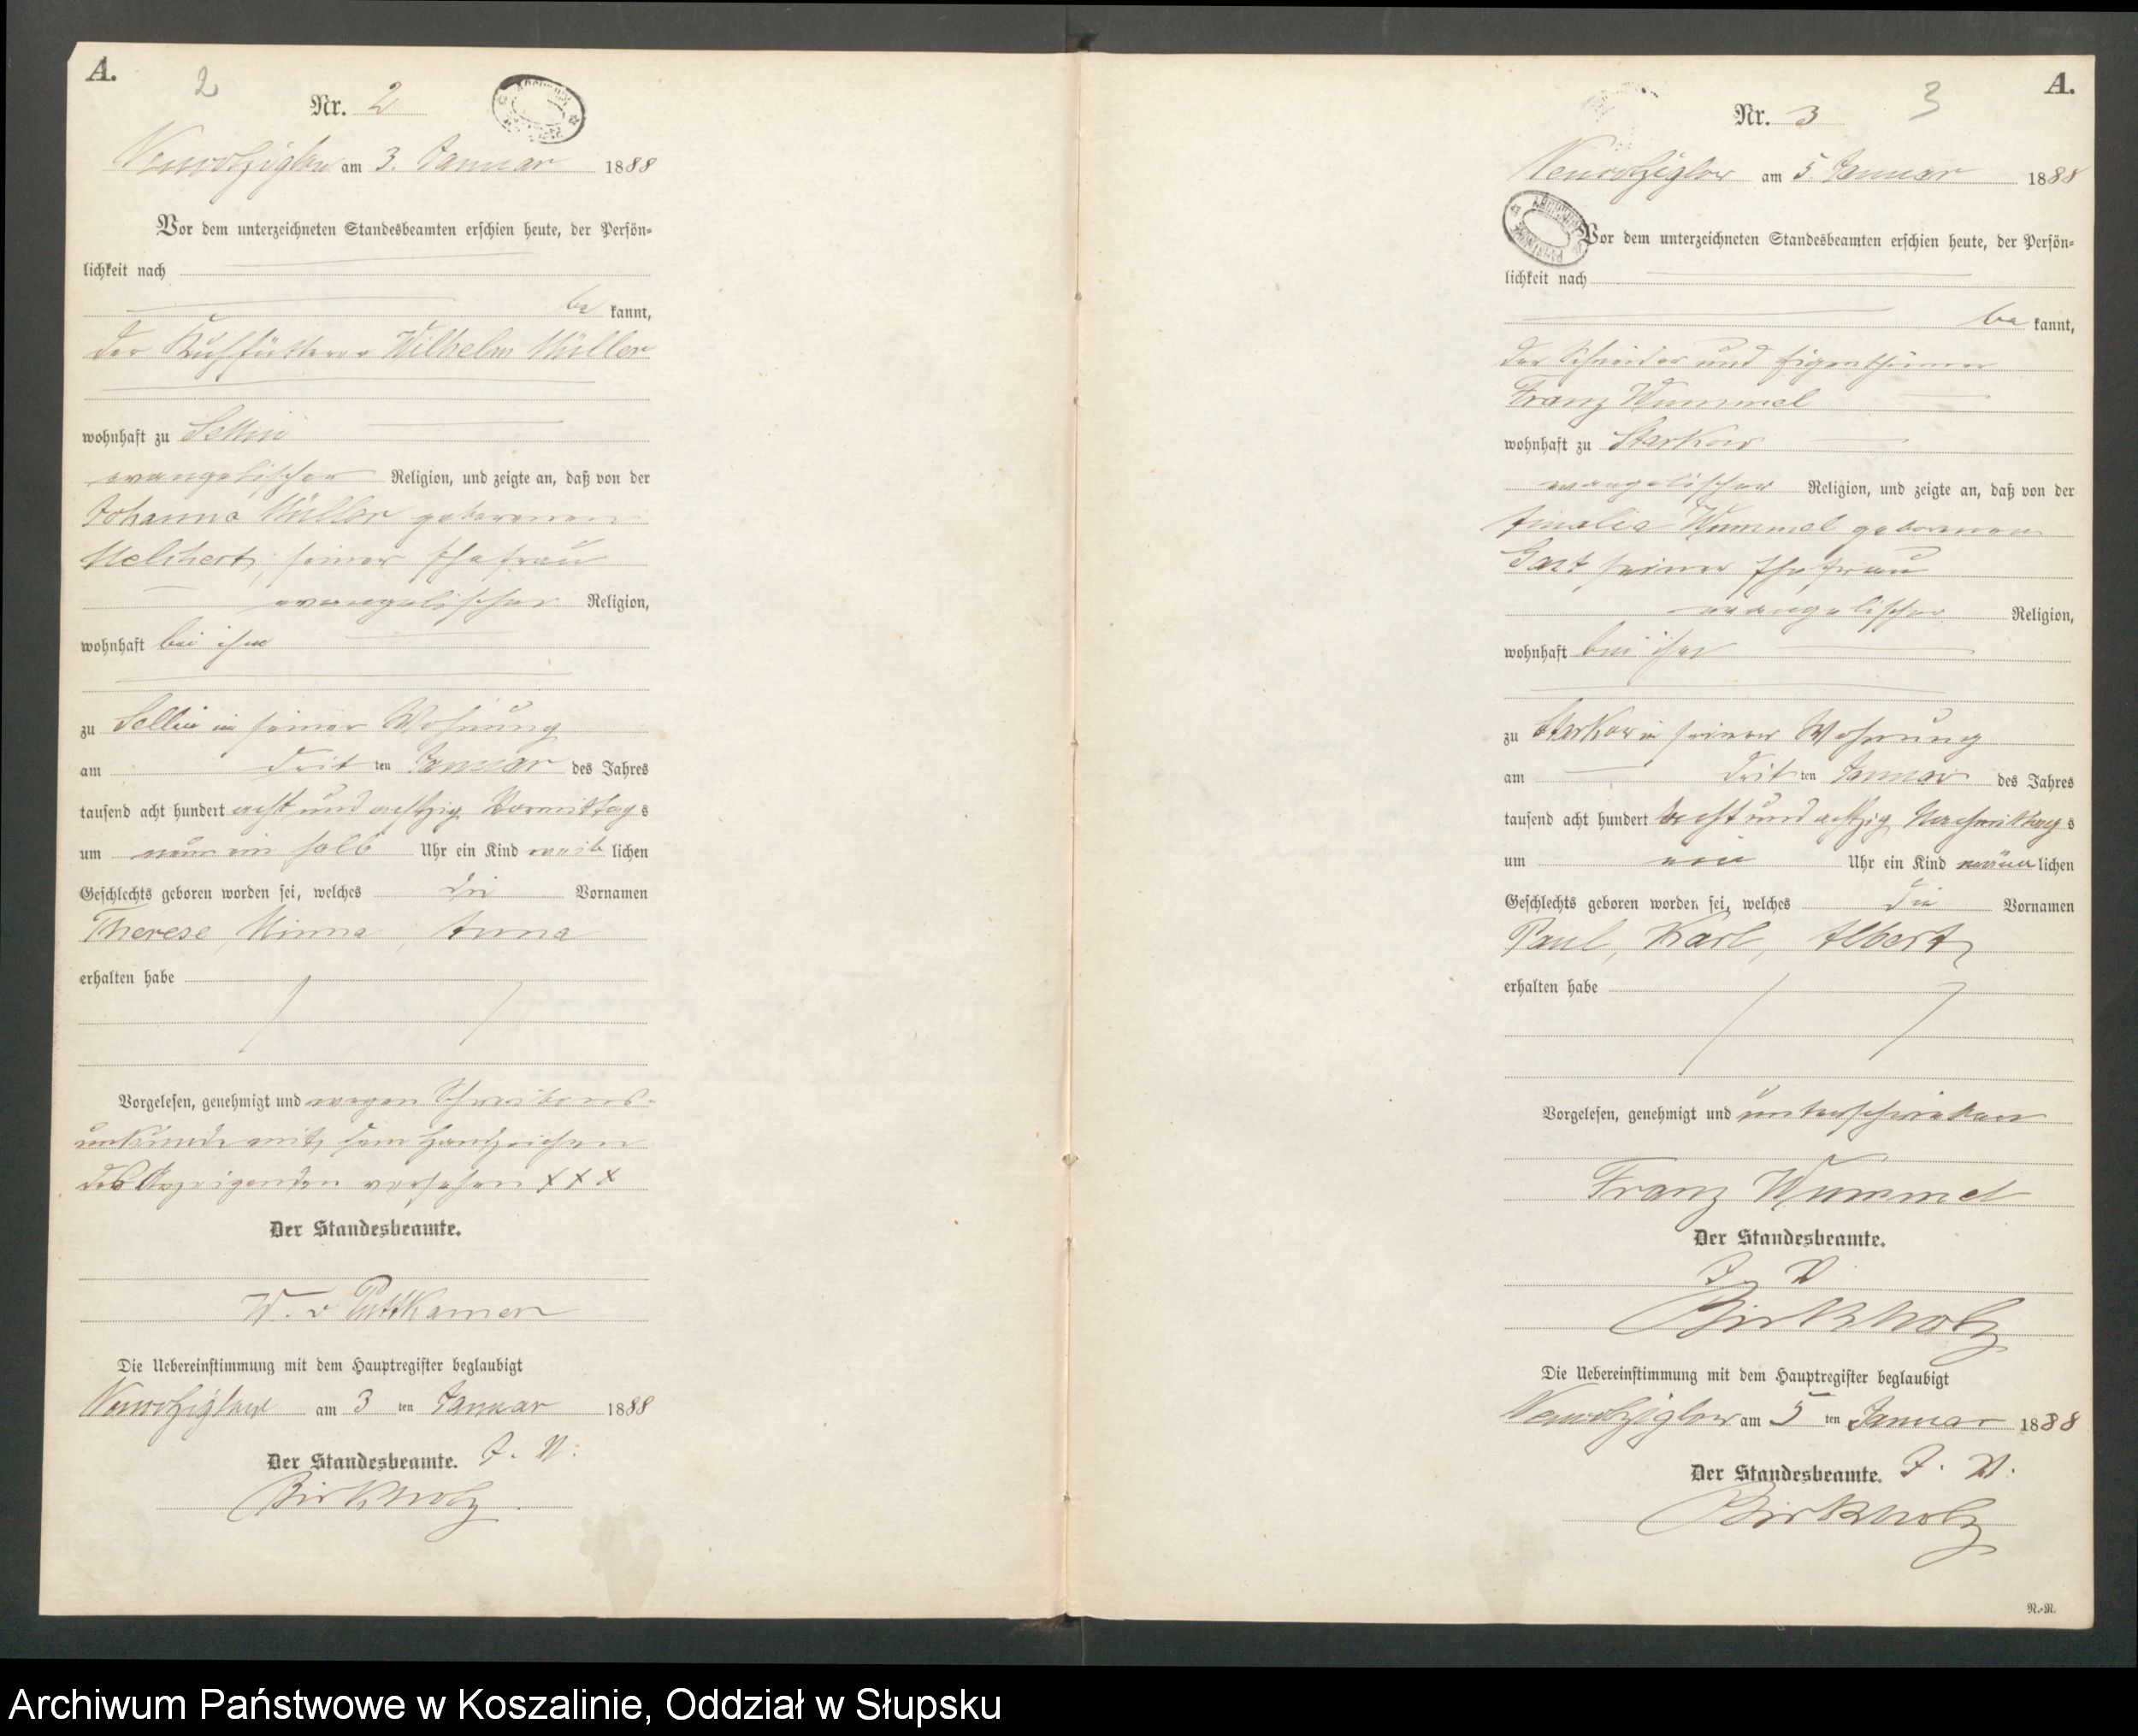 A.
2
Nr. 2
Neuwolziglow am 3. Januar 1888
Vor dem unterzeichneten Standesbeamten erschien heute, der Persön-
lichkeit nach
be kannt,
der Kuhfütterer Wilhelm Müller
wohnhaft zu Sellin
evangelischer Religion, und zeigte an, daß von der
Johanna Müller geborenen
Melchert, seiner Ehefrau
evangelischer Religion,
wohnhaft bei ihm
zu Sellin in seiner Wohnung
am drit ten Januar des Jahres
tausend acht hundert acht und achtzig Vormittag s
um neun ein halb Uhr ein Kind weib lichen
Geschlechts geboren worden sei, welches die Vornamen
Therese, Minna, Anna
erhalten habe
Vorgelesen, genehmigt und wegen Schreibens-
unkunde mit dem Handzeichen
des Anzeigenden versehen X X X
Der Standesbeamte.
W. v Puttkamer
Die Uebereinstimmung mit dem Hauptregister beglaubigt
Neuwolziglow am 3 ten Januar 1888
Der Standesbeamte. J. V.
Birkholz
A.
3
Nr. 3
Neuwolziglow am 5. Januar 1888
Vor dem unterzeichneten Standesbeamten erschien heute, der Persön-
lichkeit nach
be kannt,
der Schneider und Eigenthümer
Franz Wummel
wohnhaft zu Starkow
evangelischer Religion, und zeigte an, daß von der
Amalie Wummel geborenen
Gast seiner Ehefrau
evangelischer Religion,
wohnhaft bei ihm
zu Starkow in seiner Wohnung
am drit ten Januar des Jahres
tausend acht hundert acht und achtzig Nachmittag s
um ein Uhr ein Kind männ lichen
Geschlechts geboren worden sei, welches die Vornamen
Paul, Karl, Albert
erhalten habe
Vorgelesen, genehmigt und unterschrieben
Franz Wummel
Der Standesbeamte.
J. V.
Birkholz
Die Uebereinstimmung mit dem Hauptregister beglaubigt
Neuwolziglow am 5 ten Januar 1888
Der Standesbeamte. J. V.
Birkholz
R.-R.
Archiwum Państwowe w Koszalinie, Oddział w Słupsku